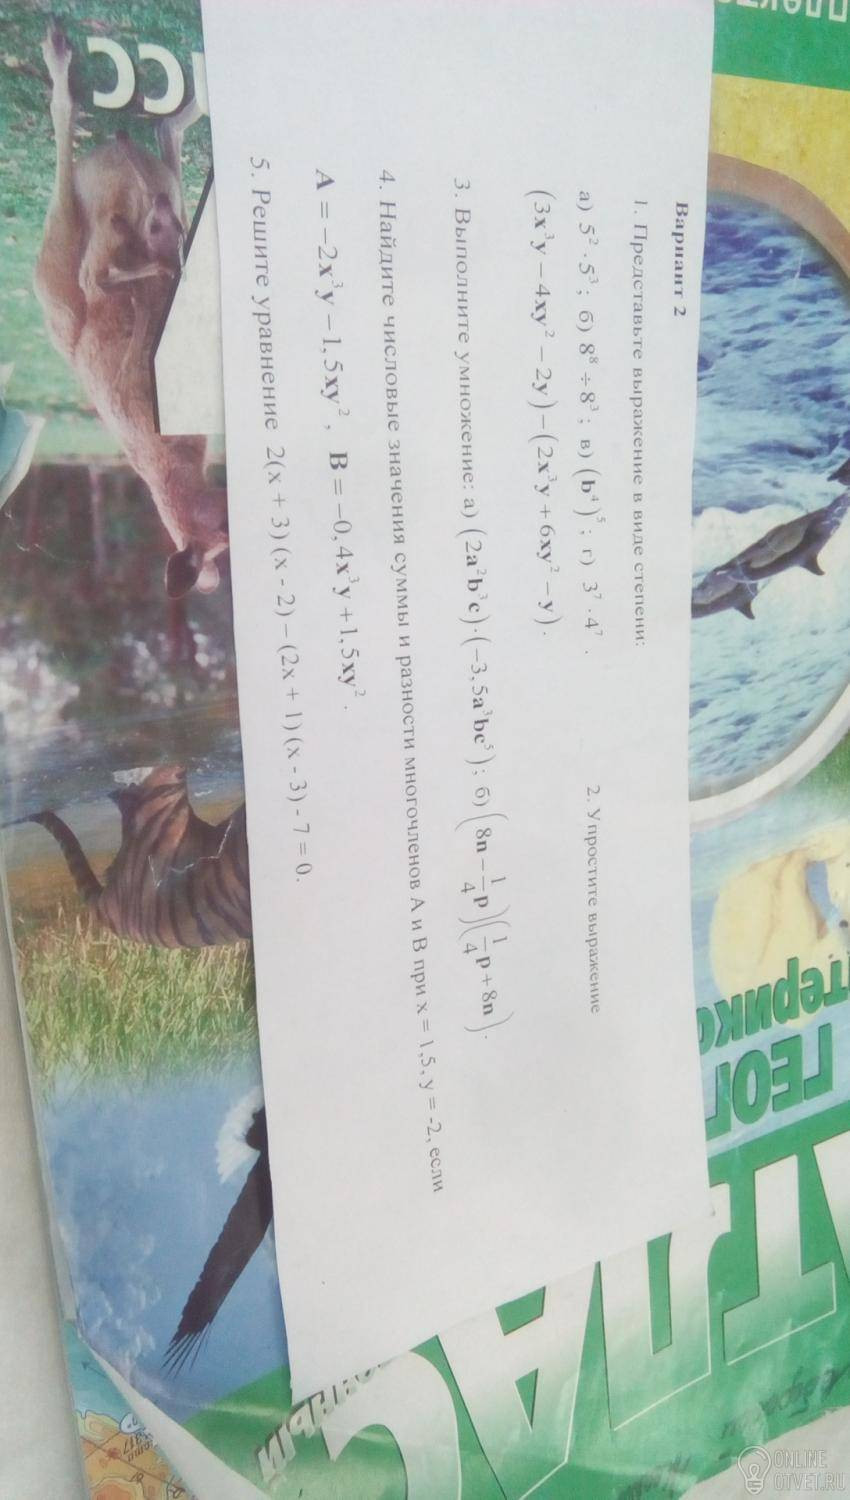 Вариант 2
1. Представьте выражение в виде степени:
а) 5² · 5³ ; б) 8⁸ ÷ 8³ ; в) (b⁴)⁵ ; г) 3⁷ · 4⁷ . 2. Упростите выражение
(3x³y − 4xy² − 2y) − (2x³y + 6xy² − y).
3. Выполните умножение: а) (2a²b³c)·(−3,5a³bc⁵); б) (8n − 1/4 p)(1/4 p + 8n).
4. Найдите числовые значения суммы и разности многочленов А и В при x = 1,5, y = -2, если
A = −2x³y − 1,5xy² , B = −0,4x³y + 1,5xy² .
5. Решите уравнение 2(x + 3) (x - 2) – (2x + 1) (x - 3) - 7 = 0.
АТЛАС
ONLINE
OTVET.RU